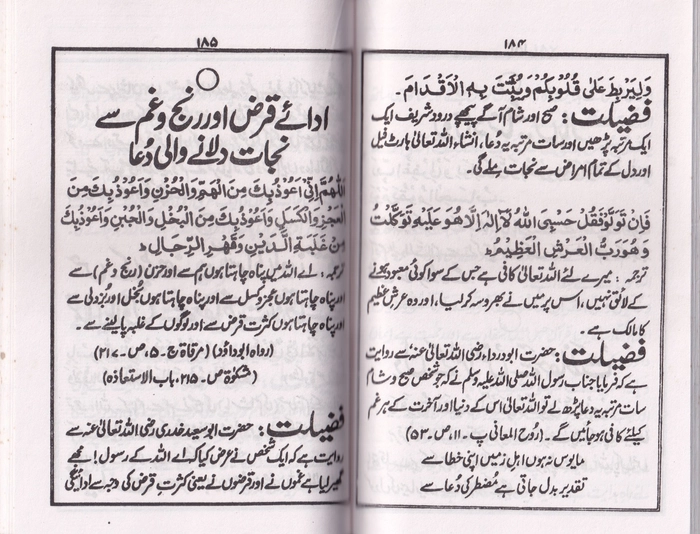 ۱۸۴
وَلِيَرْبِطَ عَلٰى قُلُوْبِكُمْ وَيُثَبِّتَ بِهِ الْاَقْدَامَ۔
فضیلت: صبح اور شام آگے پیچھے درود شریف ایک
ایک مرتبہ پڑھیں اور سات مرتبہ یہ دُعا، انشاء اللہ تعالیٰ ہارٹ فیل
اور دل کے تمام امراض سے نجات ملے گی۔
فَاِنْ تَوَلَّوْ فَقُلْ حَسْبِيَ اللهُ لَآ اِلٰهَ اِلَّا هُوَ عَلَيْهِ تَوَكَّلْتُ
وَهُوَ رَبُّ الْعَرْشِ الْعَظِيْمِ
ترجمہ: میرے لئے اللہ تعالیٰ کافی ہے جس کے سوا کوئی معبود بننے
کے لائق نہیں، اس پر میں نے بھروسہ کر لیا، اور وہ عرشِ عظیم
کا مالک ہے۔
فضیلت: حضرت ابودرداء رضی اللہ تعالیٰ عنہٗ سے روایت
ہے کہ فرمایا جناب رسول اللہ صلی اللہ علیہ وسلم نے کہ جو شخص صبح و شام
سات مرتبہ یہ دعا پڑھ لے تو اللہ تعالیٰ اس کے دنیا اور آخرت کے ہر غم
کیلئے کافی ہوجائیں گے۔ (روح المعانی پ۔۱۱، ص۔۵۳)
مایوس نہ ہوں اہلِ زمیں اپنی خطا سے
تقدیر بدل جاتی ہے مُضطر کی دُعا سے
۱۸۵
ادائے قرض اور رنج وغم سے
نجات دلانے والی دُعا
اَللّٰهُمَّ اِنِّيْ اَعُوْذُ بِكَ مِنَ الْهَمِّ وَالْحُزْنِ وَاَعُوْذُ بِكَ مِنَ
الْعَجْزِ وَالْكَسَلِ وَاَعُوْذُ بِكَ مِنَ الْبُخْلِ وَالْجُبْنِ وَاَعُوْذُ بِكَ
مِنْ غَلَبَةِ الدَّيْنِ وَقَهْرِ الرِّجَالِ
ترجمہ: اے اللہ میں پناہ چاہتا ہوں ہم سے اور حزن (رنج وغم) سے
اور پناہ چاہتا ہوں عجز و کسل سے اور پناہ چاہتا ہوں بُخل اور بزدلی سے
اور پناہ چاہتا ہوں کثرتِ قرض سے اور لوگوں کے غلبہ پا لینے سے۔
(رواہ ابوداؤد) (مرقاۃ ج۔۵، ص۔۲۱۷)
(مشکوٰۃ ص۔۲۱۵، باب الاستعاذہ)
فضیلت: حضرت ابوسعید خدری رضی اللہ تعالیٰ عنہ سے
روایت ہے کہ ایک شخص نے عرض کیا کہ اے اللہ کے رسول! مجھے
گھیر لیا ہے غموں نے اور قرضوں نے یعنی کثرتِ قرض کی وجہ سے ادائیگی